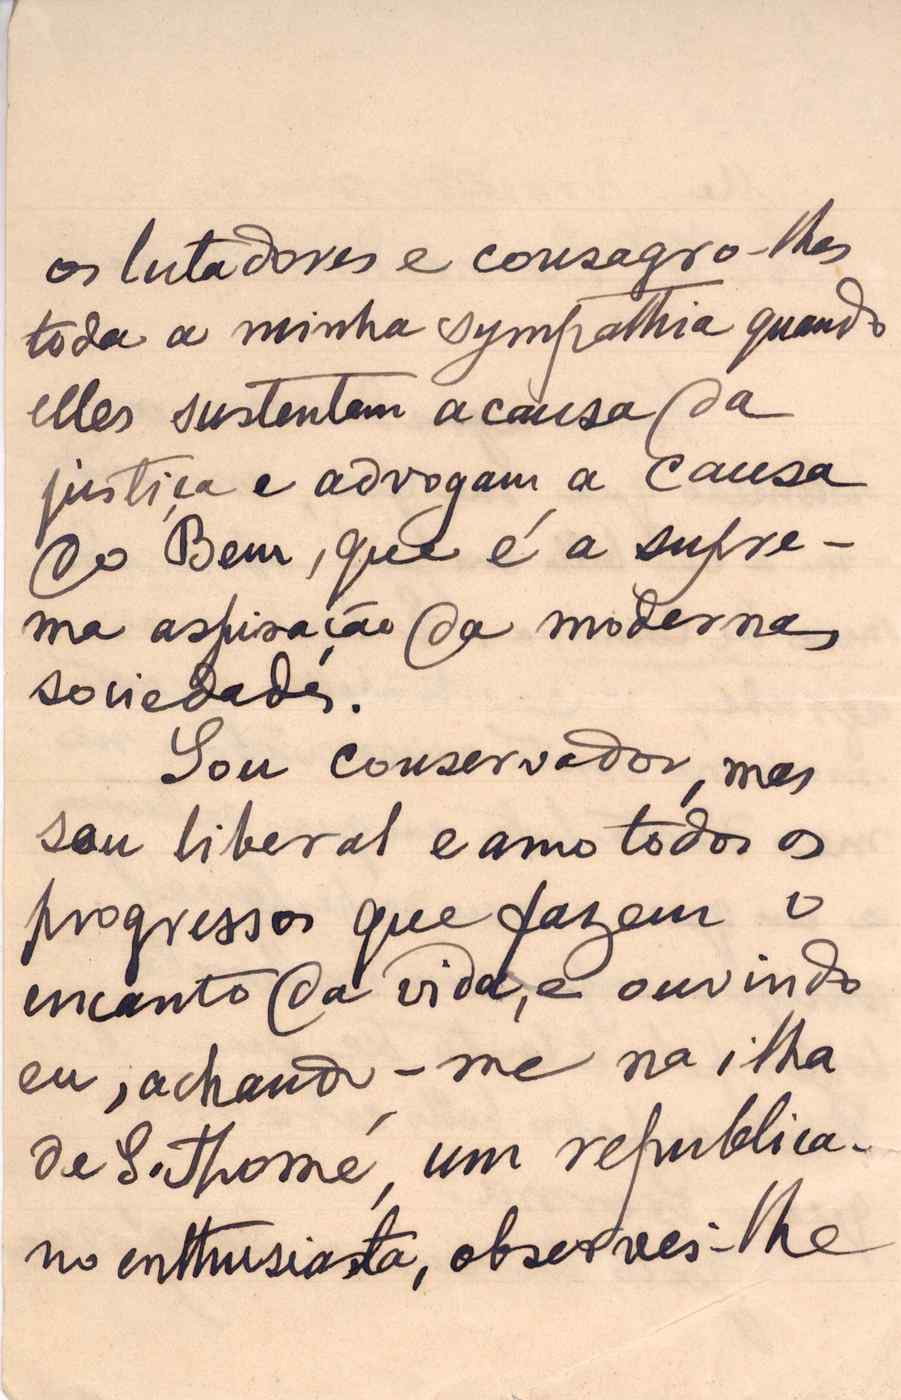 os lutadores e consagro-lhes
toda a minha sympathia quando
elles sustentam a causa da
justiça e advogam a causa
do Bem, que é a supre-
ma aspiração da moderna
sociedade.
Sou conservador, mas
sou liberal e amo todos os
progressos que fazem o
encanto da vida, e ouvindo
eu, achando-me na ilha
de S. Thomé, um republica-
no enthusiasta, observei-lhe